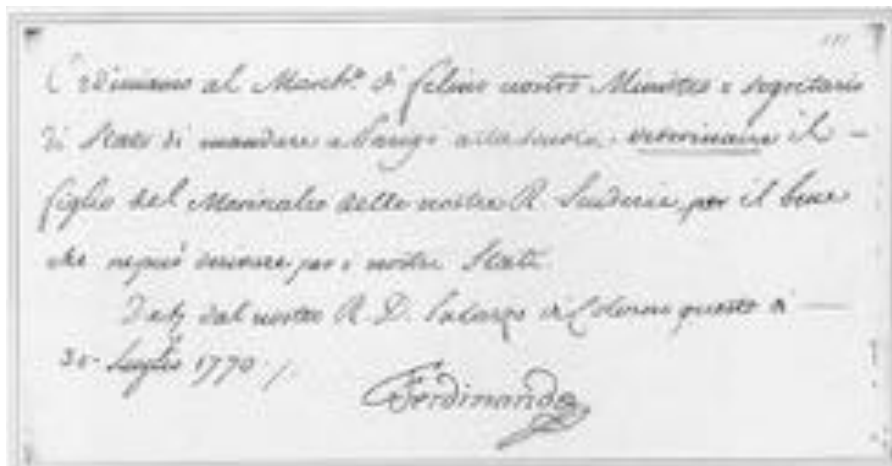 Ordiniamo al March.e di Felino nostro Ministro e segretario
di Stato di mandare a Parigi alla scuola veterinaire il —
figlio del Marescalco delle nostre R. Scuderie, per il bene
che ne può derivare per i nostri Stati.
Dato dal nostro R. D. Palazzo di Colorno questo dì —
Luglio 1770 /.
Ferdinando